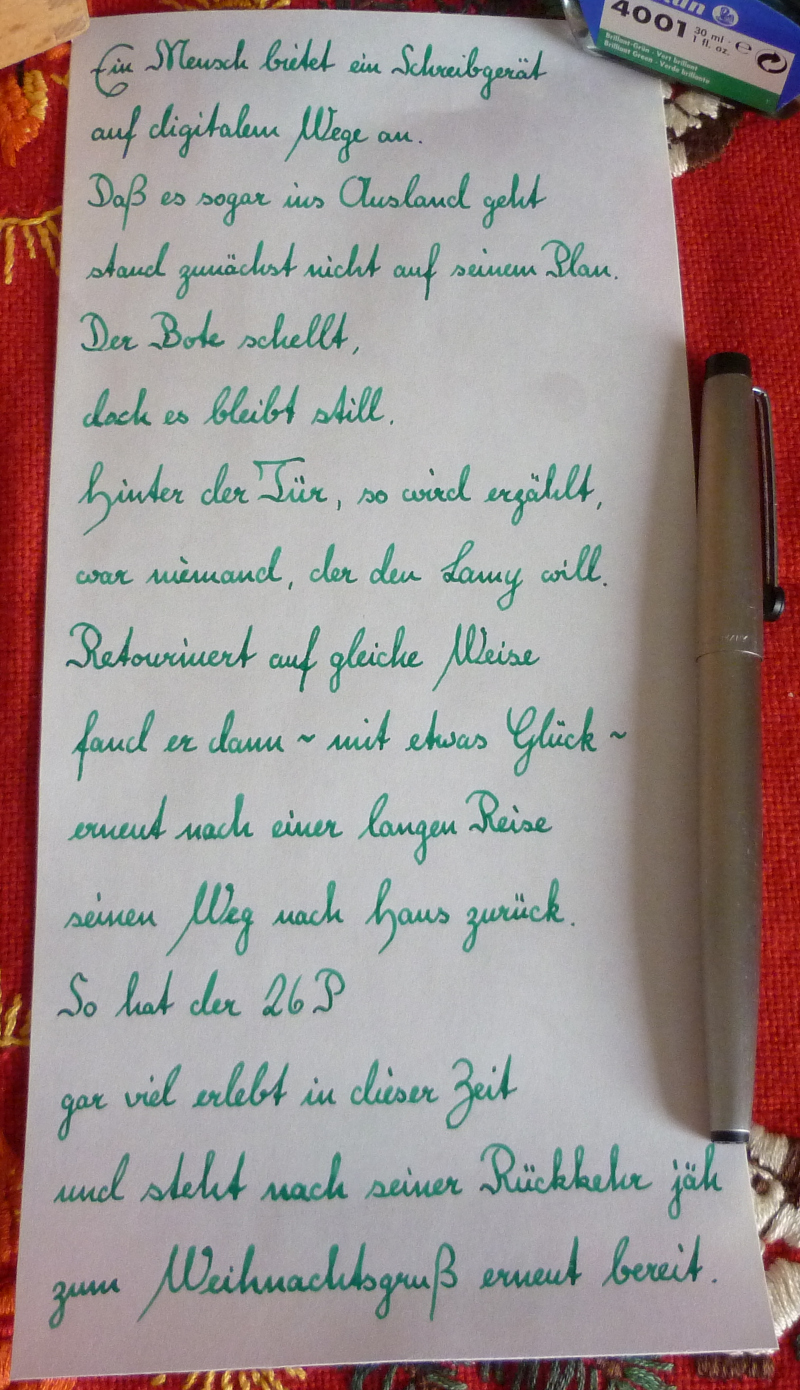 4001
30 ml · e
1 fl. oz.
Brillant-Grün · Vert brillant
Brilliant Green · Verde brillante
Ein Mensch bietet ein Schreibgerät
auf digitalem Wege an.
Daß es sogar ins Ausland geht
stand zunächst nicht auf seinem Plan.
Der Bote schellt,
doch es bleibt still.
Hinter der Tür, so wird erzählt,
war niemand, der den Lamy will.
Retourniert auf gleiche Weise
fand er dann ~ mit etwas Glück ~
erneut nach einer langen Reise
seinen Weg nach Haus zurück.
So hat der 26 P
gar viel erlebt in dieser Zeit
und steht nach seiner Rückkehr jäh
zum Weihnachtsgruß erneut bereit.